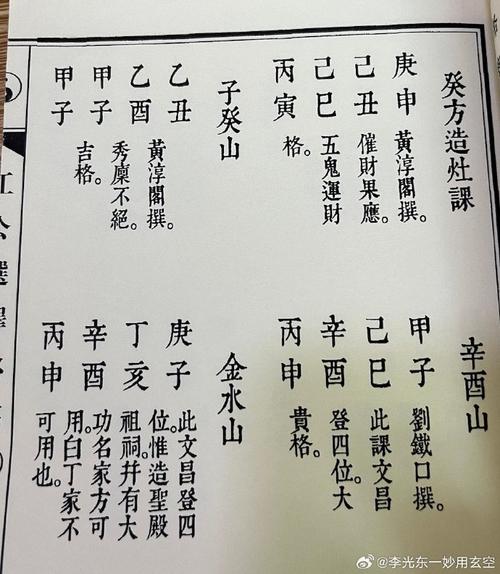 癸方造灶課
庚申 黃淳閣撰。
己丑 催財果應。
己巳 五鬼運財
丙寅 格。
子癸山
乙丑 黃淳閣撰。
乙酉 秀廩不絕。
甲子 吉格。
甲子
辛酉山
甲子 劉鐵口撰。
己巳 此課文昌
辛酉 登四位。大
丙申 貴格。
金水山
庚子
丁亥
辛酉
丙申
此文昌登四
位。惟造聖殿
祖祠。幷有大
功名家方可
用。白丁家不
可用也。
選
@李光东一妙用玄空